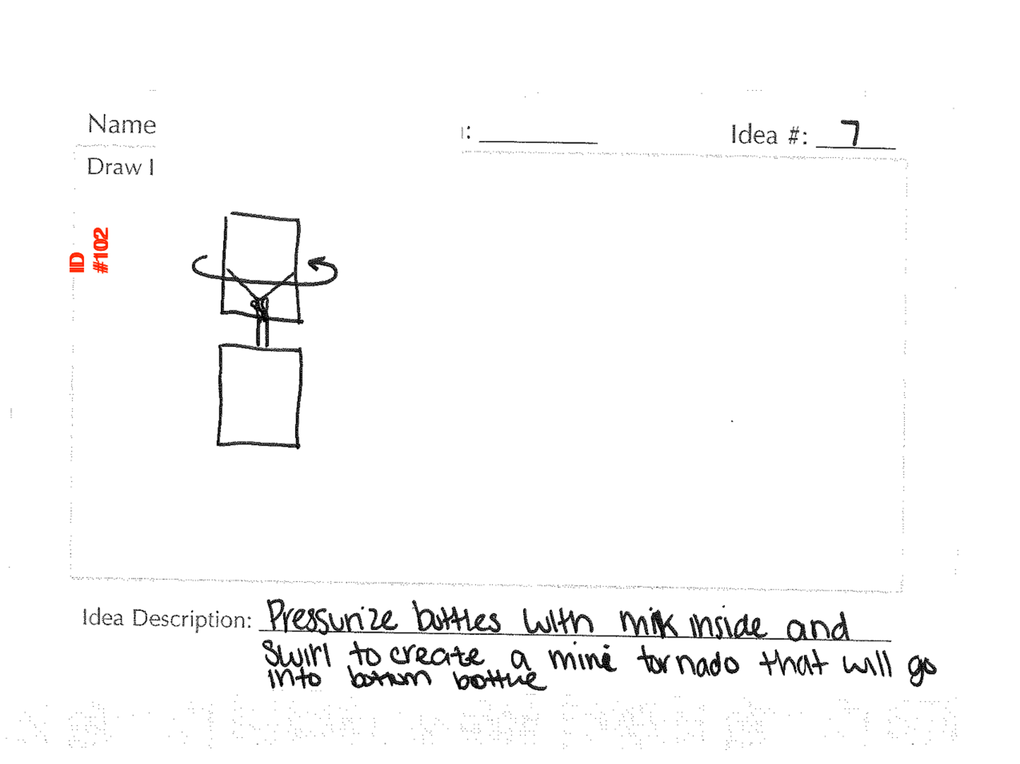 Name
: Idea #: 7
Draw I
ID
#102
Idea Description: Pressurize bottles with milk inside and
swirl to create a mini tornado that will go
into bottom bottle